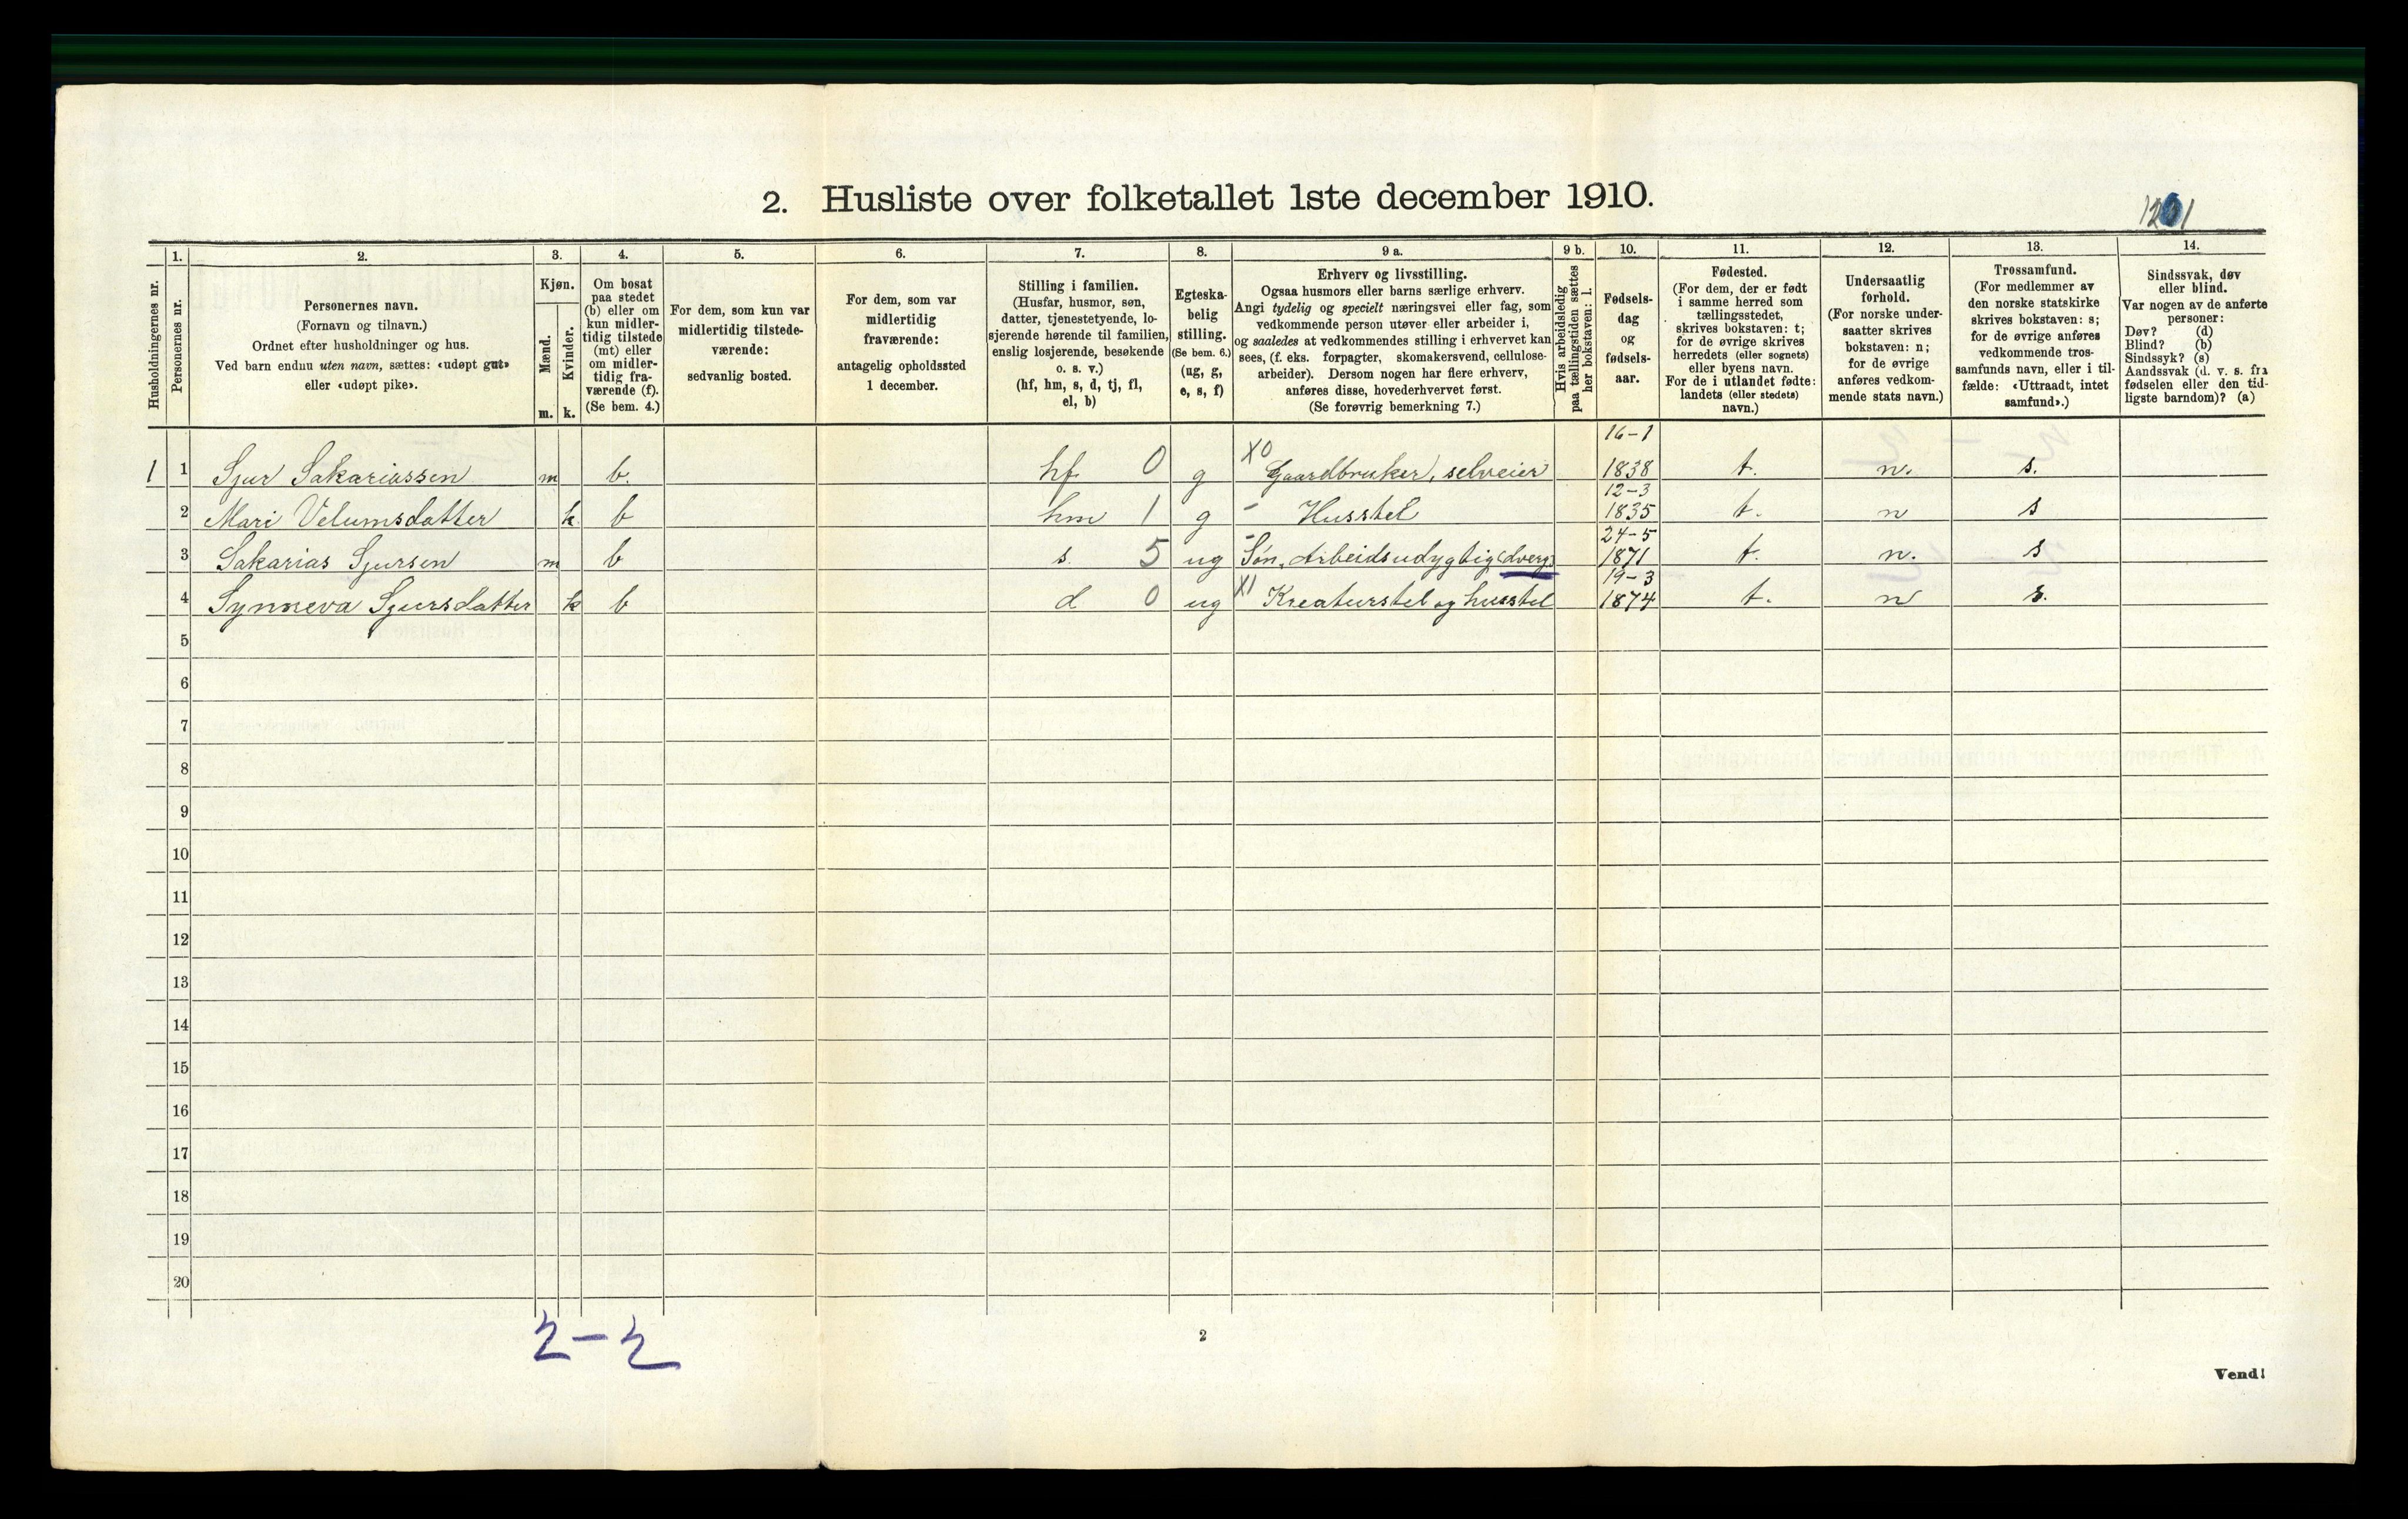 2. Husliste over folketallet 1ste december 1910.
1201
1. 2. 3. 4. 5. 6. 7. 8. 9 a. 9 b. 10. 11. 12. 13. 14.
Husholdningernes nr.
Personernes nr.
Personernes navn.
(Fornavn og tilnavn.)
Ordnet efter husholdninger og hus.
Ved barn endnu uten navn, sættes: «udøpt gut»
eller «udøpt pike».
Kjøn.
Mænd.
m.
Kvinder.
k.
Om bosat
paa stedet
(b) eller om
kun midler-
tidig tilstede
(mt) eller
om midler-
tidig fra-
værende (f).
(Se bem. 4.)
For dem, som kun var
midlertidig tilstede-
værende:
sedvanlig bosted.
For dem, som var
midlertidig
fraværende:
antagelig opholdssted
1 december.
Stilling i familien.
(Husfar, husmor, søn,
datter, tjenestetyende, lo-
sjerende hørende til familien,
enslig losjerende, besøkende
o. s. v.)
(hf, hm, s, d, tj, fl,
el, b)
Egteska-
belig
stilling.
(Se bem. 6.)
(ug, g,
e, s, f)
Erhverv og livsstilling.
Ogsaa husmors eller barns særlige erhverv.
Angi tydelig og specielt næringsvei eller fag, som
vedkommende person utøver eller arbeider i,
og saaledes at vedkommendes stilling i erhvervet kan
sees, (f. eks. forpagter, skomakersvend, cellulose-
arbeider). Dersom nogen har flere erhverv,
anføres disse, hovederhvervet først.
(Se forøvrig bemerkning 7.)
Hvis arbeidsledig
paa tællingstiden sættes
her bokstaven: l.
Fødsels-
dag
og
fødsels-
aar.
Fødested.
(For dem, der er født
i samme herred som
tællingsstedet,
skrives bokstaven: t;
for de øvrige skrives
herredets (eller sognets)
eller byens navn.
For de i utlandet fødte:
landets (eller stedets)
navn.)
Undersaatlig
forhold.
(For norske under-
saatter skrives
bokstaven: n;
for de øvrige
anføres vedkom-
mende stats navn.)
Trossamfund.
(For medlemmer av
den norske statskirke
skrives bokstaven: s;
for de øvrige anføres
vedkommende tros-
samfunds navn, eller i til-
fælde: «Uttraadt, intet
samfund».)
Sindssvak, døv
eller blind.
Var nogen av de anførte
personer:
Døv? (d)
Blind? (b)
Sindssyk? (s)
Aandssvak (d. v. s. fra
fødselen eller den tid-
ligste barndom)? (a)
1 1 Sjur Sakariassen m b. hf 0 g X0 Gaardbruker, selveier 16-1 1838 t. n. s.
2 Mari Velumsdatter k b hm 1 g - Husstel 12-3 1835 t. n s
3 Sakarias Sjursen m b s. 5 ug - Søn. Arbeidsudygtig (dverg) 24-5 1871 t. n. s
4 Synneva Sjursdatter k b d 0 ug X1 Kreaturstel og husstel 19-3 1874 t. n s.
5
6
7
8
9
10
11
12
13
14
15
16
17
18
19
20
2-2
2
Vend!